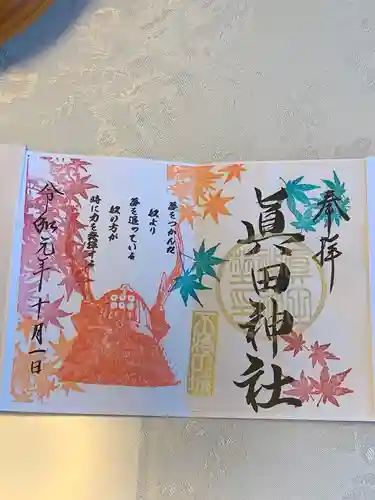 奉拝
眞田神社
夢をつかんだ
奴より
夢を追っている
奴の方が
時に力を発揮する
令和元年十月一日